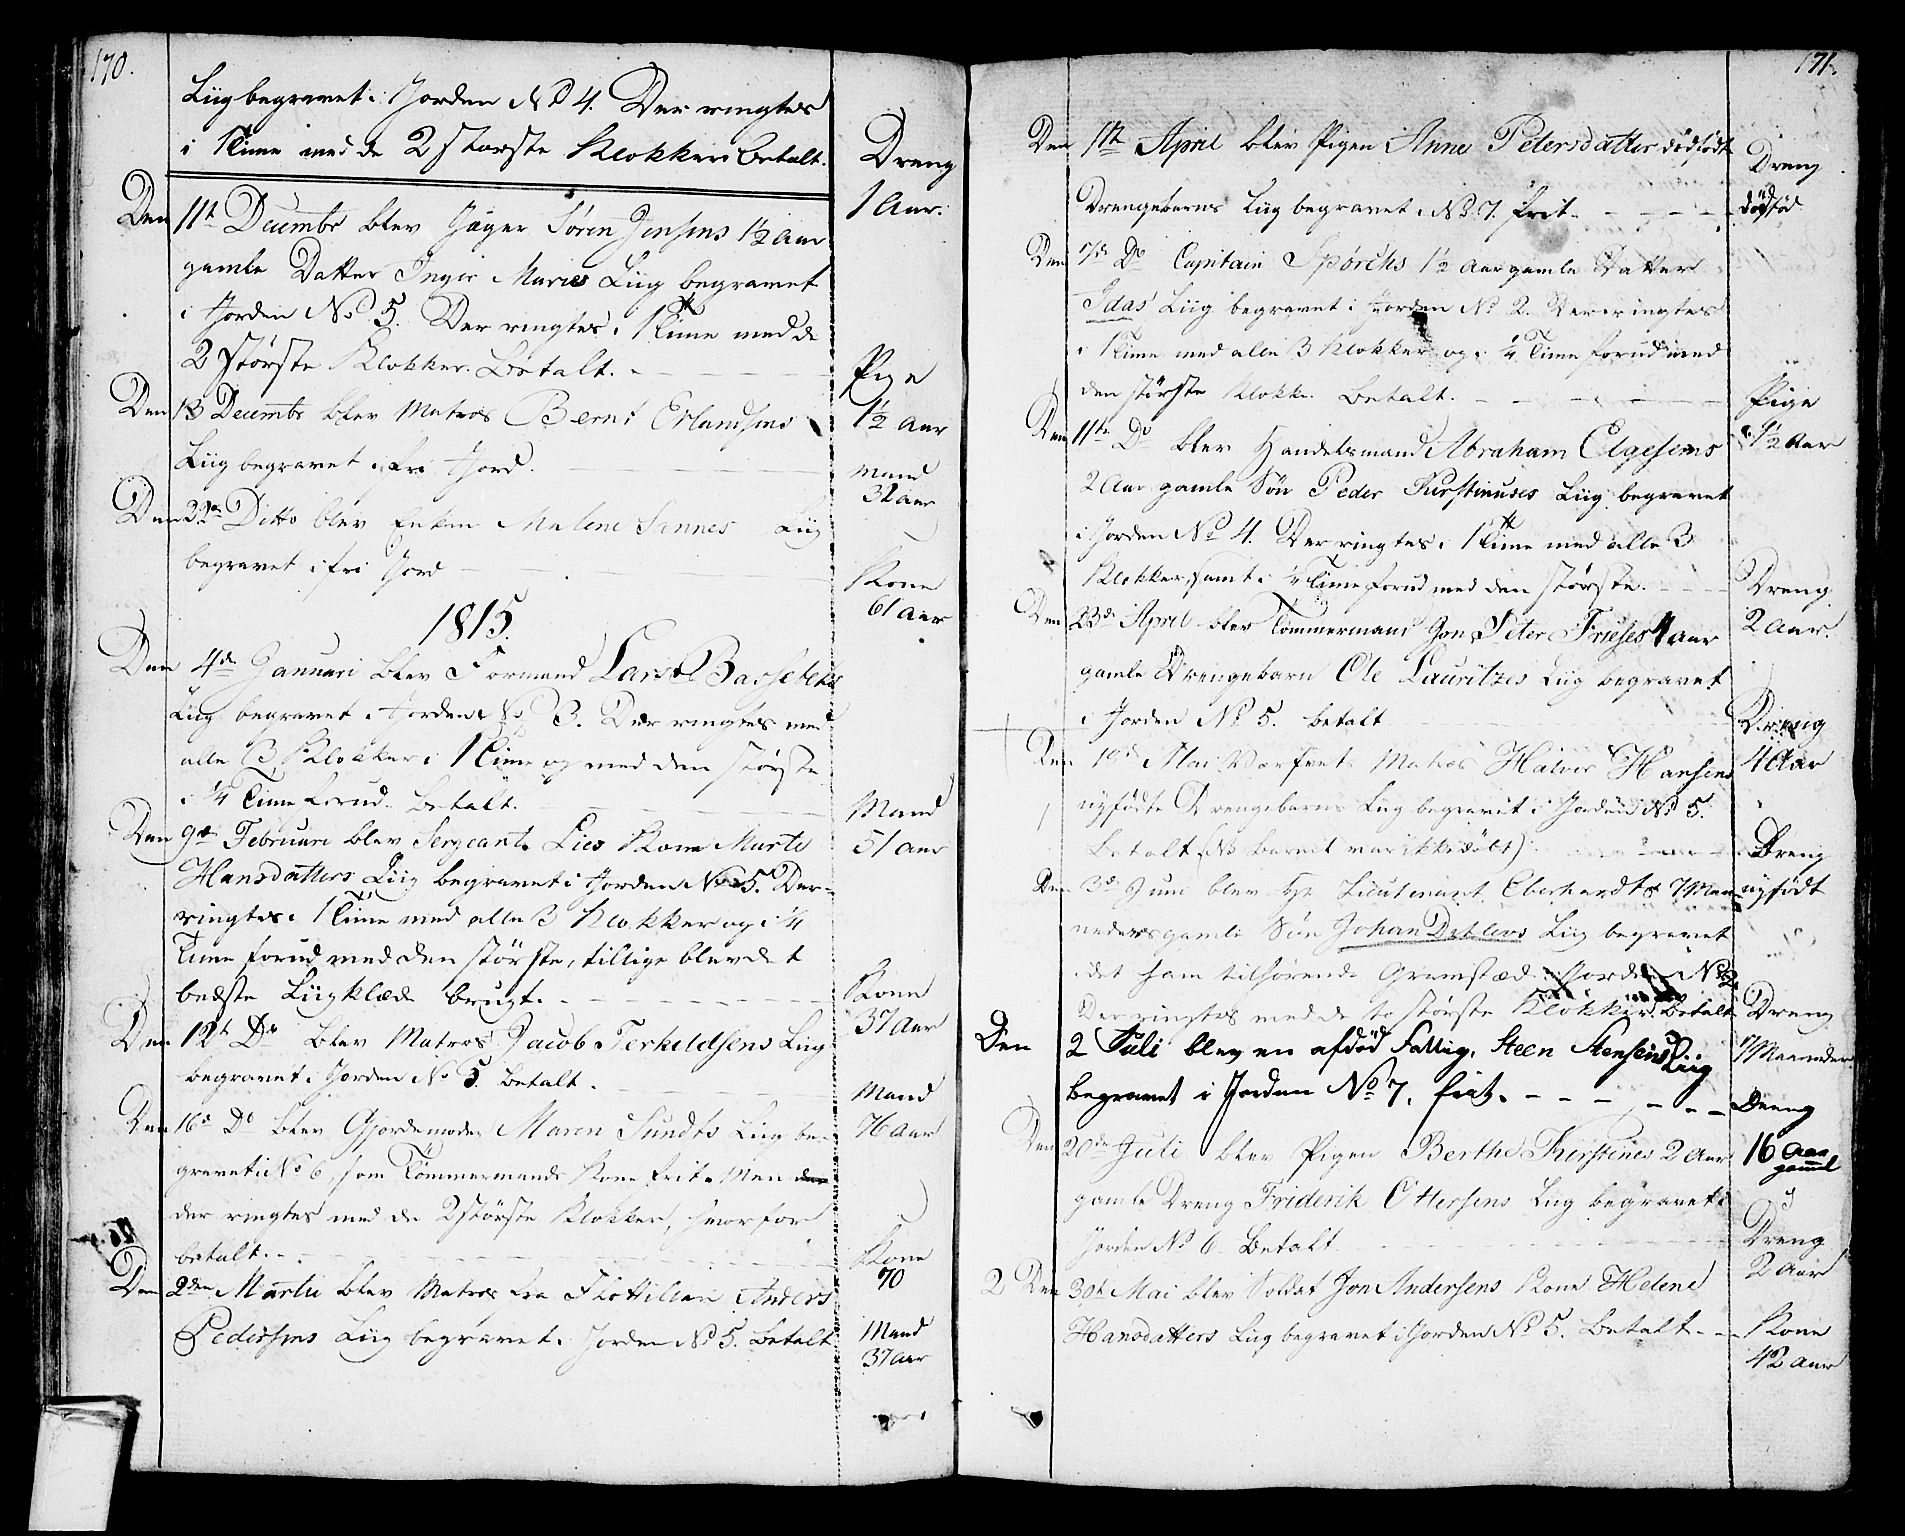 170.
Liig begravet i Jorden No 4. Der ringtes
i 1 Time med de 2 største Klokker. betalt.
Dreng
1 Aar.
Den 11te Decembr blev Jæger Søren Jensens 1½ Aar
gamle Datter Inger Maries Liig begravet
i Jorden No 5. Der ringtes i 1 Time med de
2 største Klokker. Betalt.
Pige
1½ Aar
Den 13 Decembr blev Matros Bernt Erlandsens
Liig begravet i fri Jord.
Mand
32 Aar
Den Ditto blev Enken Malene Sinnes Liig
begravet i fri Jord
Kone
61 Aar
1815.
Den 4de Januari blev Formand Lars Bassebeks
Liig begravet i Jorden No 3. Der ringtes med
alle 3 Klokker i 1 Time og med den største
i ¼ Time forud. Betalt.
Mand
51 Aar
Den 9de Februari blev Sergeant Lies Kone Marte
Hansdatters Liig begravet i Jorden No 5. Der
ringtes i 1 Time med alle 3 Klokker og i ¼
Time forud med den største, tillige blev det
bedste Liigklæde brugt.
Kone
37 Aar
Den 12te Do blev Matros Jacob Terkildsens Liig
begravet i Jorden No 5. Betalt.
Mand
76 Aar
Den 16de Do blev Gjordemoder Maren Sundts Liig be-
gravet i No 6, som Tømmermands Kone frit. Men
der ringtes med de 2 største Klokker, hvorfor
betalt.
Kone
70
Den 2den Martii blev Matros fra Flottillen Anders
Pedersens Liig begravet i Jorden No 5. Betalt
Mand
37 Aar
171.
Den 1te April blev Pigen Anne Petersdatter dødfødt
Drengebarns Liig begravet i No 7. frit.
Dreng
dødfød
Den 7de Do Capitain Spörcks 1½ Aar gamle Datter
Idas Liig begravet i Jorden No 2. Der ringtes
i 1 Time med alle 3 Klokker og i ¼ Time forud med
den største Klokke. Betalt.
Pige
1½ Aar
Den 11te Do blev Handelsmand Abraham Elgesems
2 Aar gamle Søn Peder Kirstinuses Liig begravet
i Jorden No 4. Der ringtes i 1 Time med alle 3
Klokker, samt i ¼ Time forud med den største.
Dreng
2 Aar.
Den 23de April blev Tømmermand Jon Peter Frieses 4 Aar
gamle Drengebarn Ole Lauritzes Liig begravet
i Jorden No 5. betalt
Dreng
4 Aar
Den 19de Mai Værfvet Matros Halvor Hansens
nyfødte Drengebarns Liig begravet i Jorden No 5.
Betalt (NB barnet var ikke døbt)
Dreng
nyfødt
Den 3de Juni blev Hr Lieutenant Eberhardts 7 Maa-
neders gamle Søn Johan Detlevs Liig begravet
i det ham tilhørende Gravsted i Jorden No 2.
Der ringtes med de to største Klokker. Betalt
Dreng
7 Maaneder
Den 2 Juli blev en afdød Fattig, Steen Stensens Liig
begravet i Jorden No 7. frit.
Dreng
16 Aar
gammel
Den 20de Juli blev Pigen Berthe Kirstines 2 Aar
gamle Dreng Friderik Ottersens Liig begravet i
Jorden No 6. Betalt
Dreng
2 Aar
2 Den 30te Mai blev Soldat Jon Andersens Kone Helene
Hansdatters Liig begravet i Jorden No 5. Betalt.
Kone
42 Aar